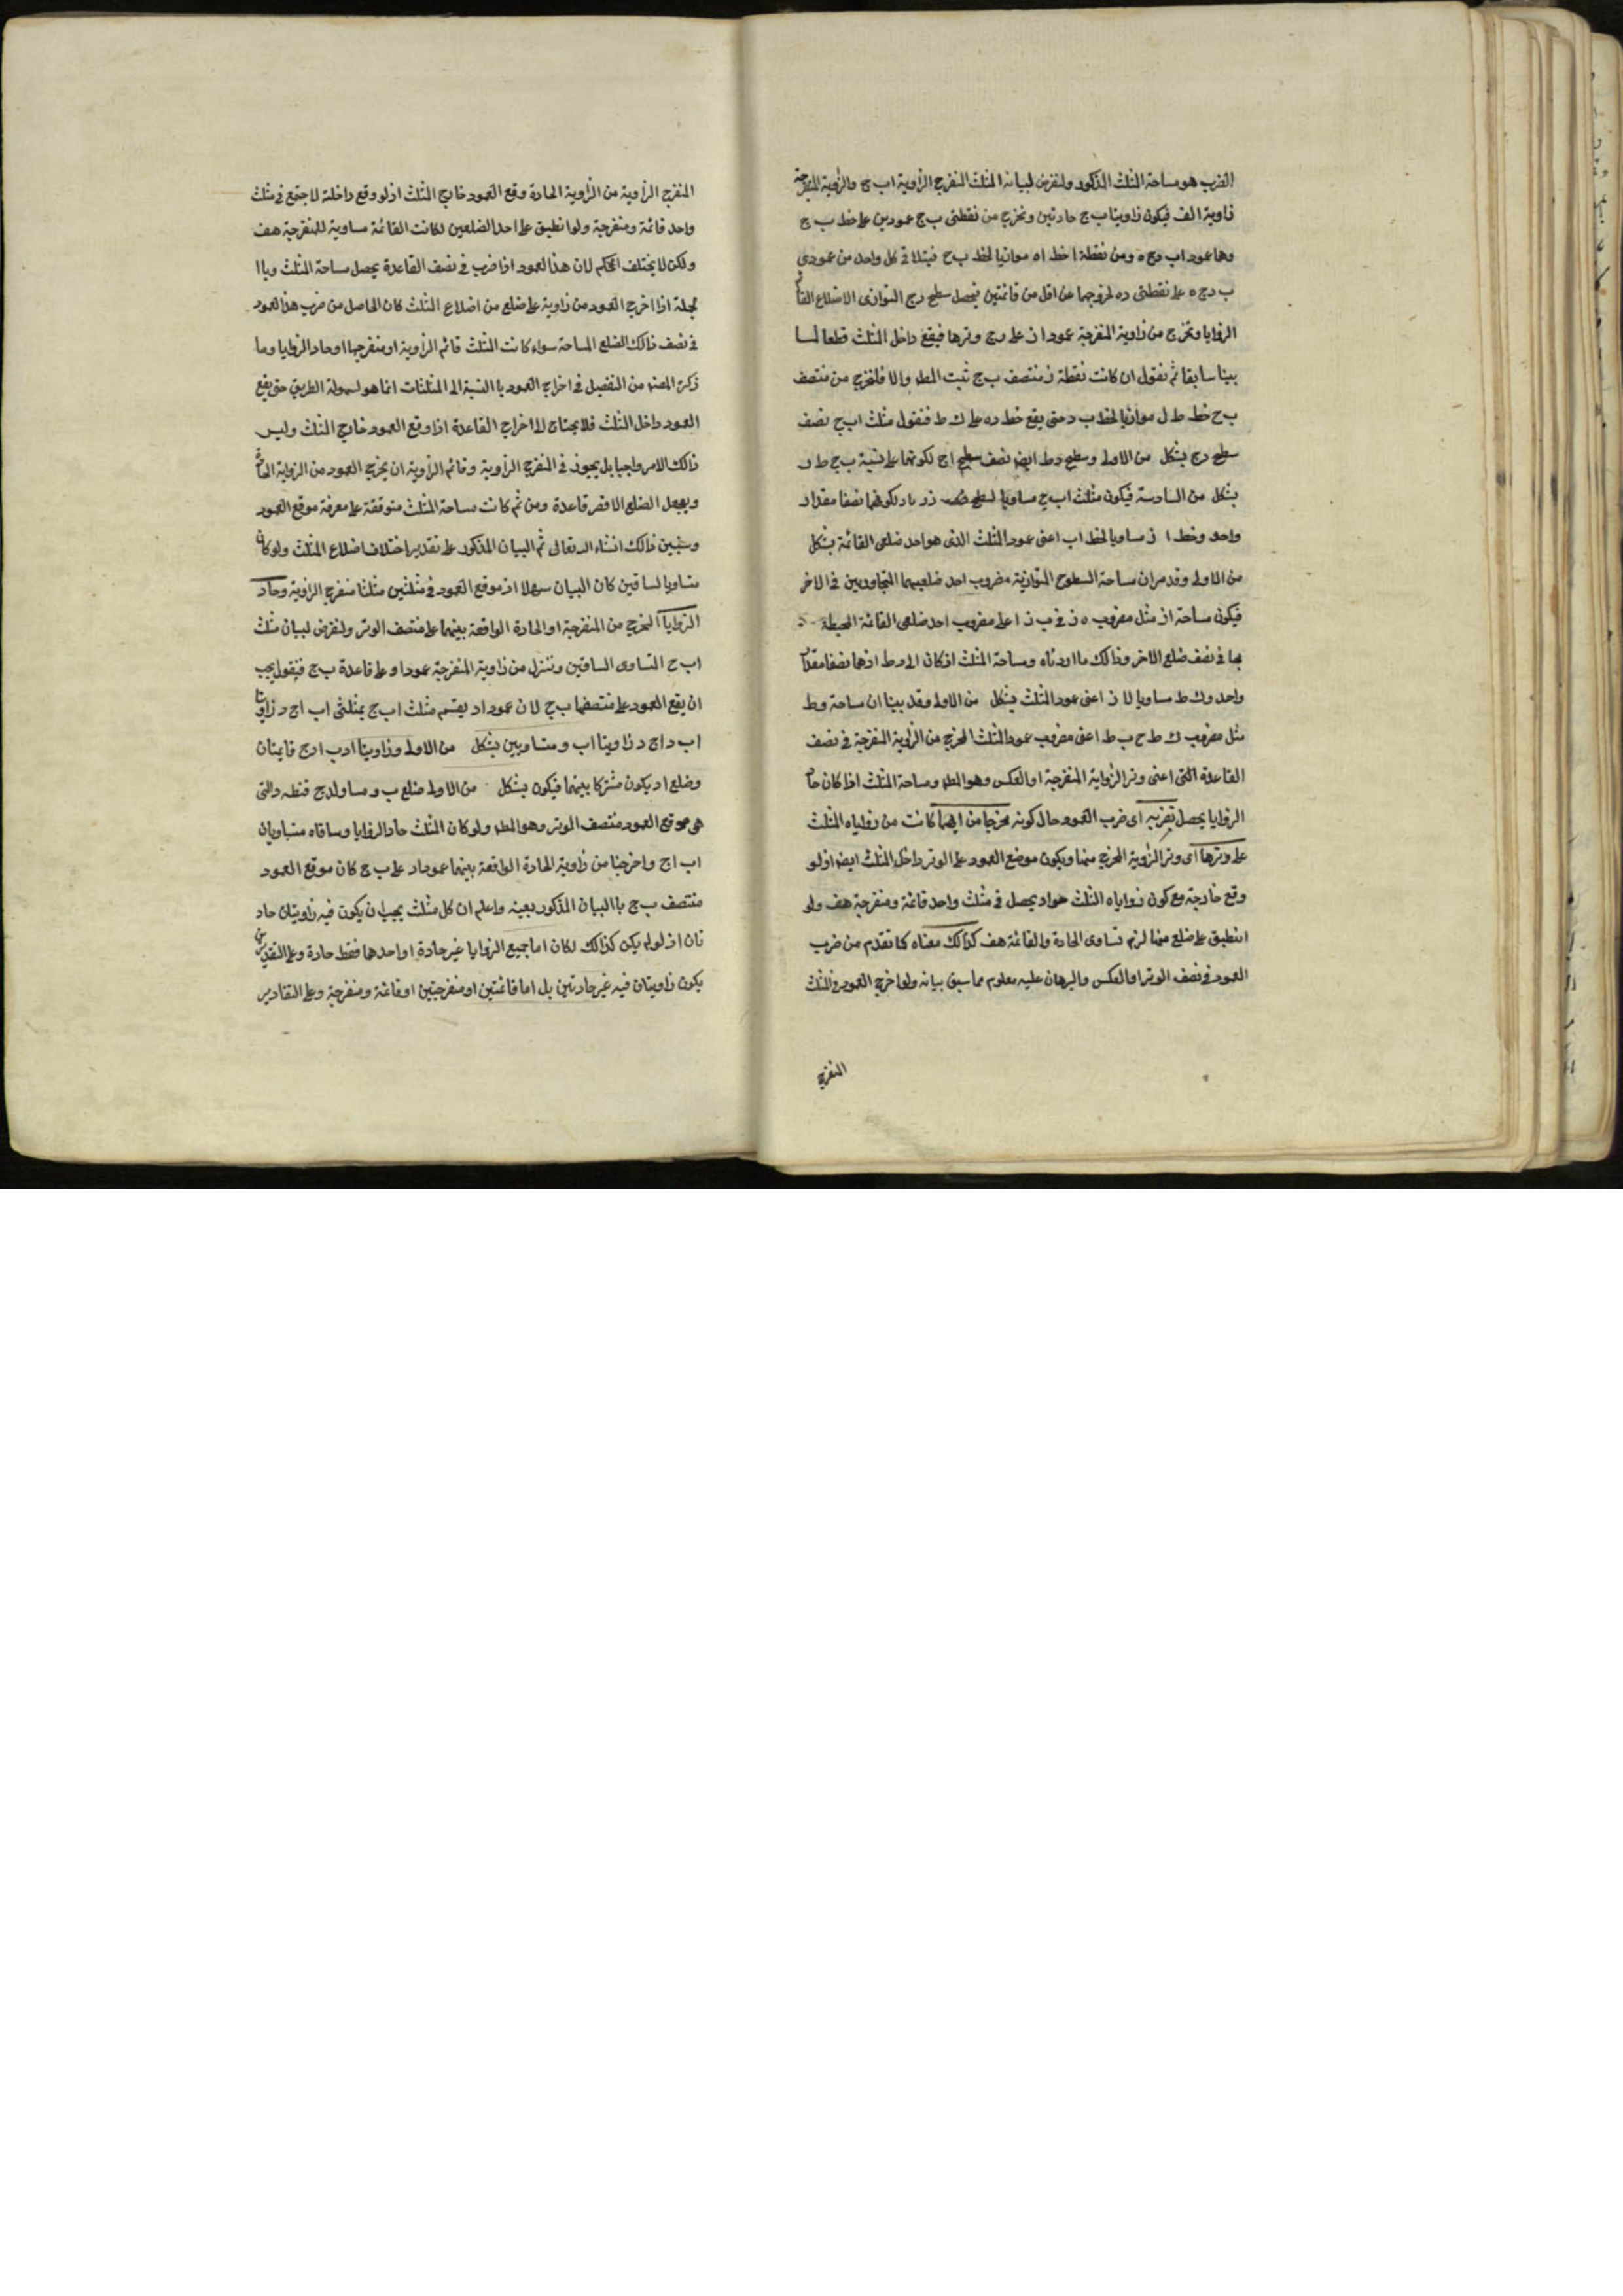 الضرب هو مساحة المثلث المذكور ولنفرض لبيانه المثلث المنفرج الزاوية اب ج والزاوية المنفرجة
زاوية الف فيكون زاويتا ب ج حادتين ونخرج من نقطتى ب ج عمودين على خط ب ج
وهما عمود اب د ج ه ومن نقطة ا خط اه موازيا لخط ب ح فيتلاقى كل واحد من عمودى
ب د ج ه على نقطتى ده لخروجهما عن اقل من قائمتين فيحصل سطح د ج المتوازى الاضلاع القائم
الزوايا ونخرج من زاوية المنفرجة عمود ا ز على ب ج وترها فيقع داخل المثلث قطعا لما
بينا سابقا ثم نقول ان كانت نقطة ز منتصف ب ج ثبت المط والا فلنخرج من منتصف
ب ح خط ط ل موازيا لخط ب د حتى يقع خط ده على ك ط فنقول مثلث اب ج نصف
سطح د ج بشكل من الاولى وسطح د ط ايض نصف سطح اج لكونهما على نسبة ب ج ط ر
بشكل من السادسة فيكون مثلث اب ج مساويا لسطح د لكونهما نصفا مقدار
واحد وخط ا ز مساويا لخط اب اعنى عمود المثلث الذى هو احد ضلعى القائمة بشكل
من الاولى وقد مر ان مساحة السطوح المتوازية مضروب احد ضلعيهما المتجاورين فى الاخر
فيكون مساحة از مثل مضروب ه ز فى ب ز ا على مضروب احد ضلعى القائمة المحيطة
بها فى نصف ضلع الاخر وذالك ما اردناه ومساحة المثلث از كان الى د ط اذهما نصفا مقدار
واحد وك ط مساويا لا ز اعنى عمود المثلث بشكل من الاولى وقد بينا ان مساحة و ط
مثل مضروب ك ط ح ب ط اعنى مضروب عمود المثلث المخرج من الزاوية المنفرجة فى نصف
القاعدة التى اعنى وتر الزواية المنفرجة او العكس وهو المط ومساحة المثلث اذا كان حاد
الزوايا يحصل بضربه اى ضرب العمود حال كونه مخرجا من ايهما كانت من زواياه المثلث
على وترها اى وتر الزاوية المخرج منها ويكون موضع العمود على الوتر داخل المثلث ايض اذ لو
وقع خارجة مع كون زواياه المثلث حواد يحصل فى مثلث واحد قائمة ومنفرجة هف ولو
انطبق على ضلع منها لزم تساوى الحادة والقائمة هف كذالك معناه كما تقدم من ضرب
العمود فى نصف الوتر او العكس والبرهان عليه معلوم مما سبق بيانه ولو اخرج العمود فى المثلث
المنفرج
المنفرج الزاوية من الزاوية الحادة وقع العمود خارج المثلث اذ لو وقع داخلة لاجتمع فى مثلث
واحد قائمة ومنفرجة ولو انطبق على احد الضلعين لكانت القائمة مساوية للمنفرجة هف
ولكن لا يختلف الحكم لان هذا العمود اذا ضرب فى نصف القاعدة يحصل مساحة المثلث وباا
لجملة اذا اخرج العمود من زاوية على ضلع من اضلاع المثلث كان الحاصل من ضرب هذا العمود
فى نصف ذالك الضلع المساحة سواء كانت المثلث قائم الزاوية او منفرجها او حاد الزوايا وما
ذكره المصنف من التفصيل فى اخراج العمود باا لنسبة الى المثلثات انما هو لسهولة الطريق حتى يقع
العمود داخل المثلث فلا يحتاج الى اخراج القاعدة اذا وقع العمود خارج المثلث وليس
ذالك الامر واجبا بل يجوز فى المنفرج الزاوية وقائم الزاوية ان يخرج العمود من الزواية الحادة
ويجعل الضلع الاقصر قاعدة ومن ثم كانت مساحة المثلث متوقفة على معرفة موقع العمود
وسنبين ذالك انشاء الله تعالى ثم البيان المذكور على تقدير اختلاف اضلاع المثلث ولو كان
متساويا لساقين كان البيان سهلا اذ موقع العمود فى مثلثين مثلثا منفرج الزاوية وحاد
الزوايا المخرج من المنفرجة او الحادة الواقعة بينهما على منتصف الوتر ولنفرض لبيان مثلث
اب ح المتساوى الساقين وننزل من زاوية المنفرجة عمودا و على قاعدة ب ج فنقول يجب
ان يقع العمود على منتصفها ب ج لان عمود اد يقسم مثلث اب ج بمثلثى اب اج د زاويتا
اب د اج د زاويتا اب و متساويين بشكل من الاولى وزاويتا ادب ادج قايمتان
وضلع اد يكون مشتركا بينهما فيكون بشكل من الاولى ضلع ب و مساو لدج فنطه دالتى
هى موقع العمود منتصف الوتر وهو المط ولو كان المثلث حاد الزوايا وساقاه متساويان
اب اج واخرجنا من زاوية الحادة الواقعة بينهما عمود اد على ب ج كان موقع العمود
منتصف ب ج باا لبيان المذكور بعينه واعلم ان كل مثلث يجب ان يكون فيه زاويتان حاد
تان اذ لو لم يكن كذالك لكان اما جميع الزوايا غير حادة او احدها فقط حادة وعلى التقديرين
يكون زاويتان فيه غير حادتين بل اما قائمتين او منفرجتين او قائمة ومنفرجة وعلى التقادير